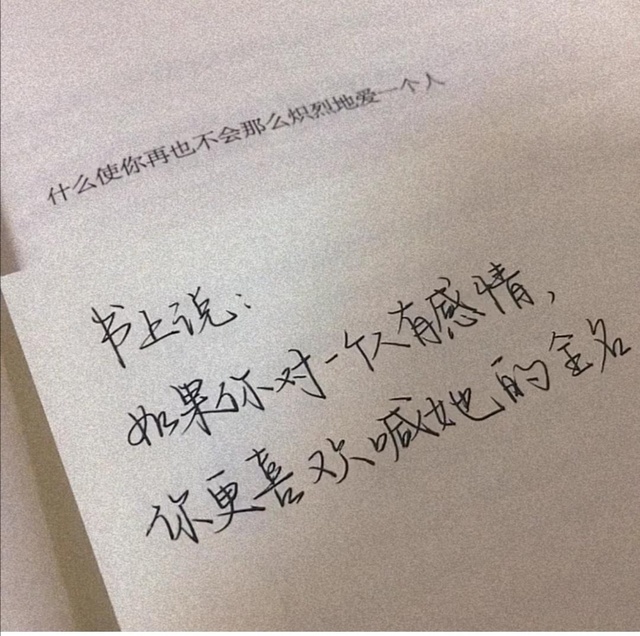 什么使你再也不会那么炽烈地爱一个人
书上说：
如果你对一个人有感情，
你更喜欢喊她的全名